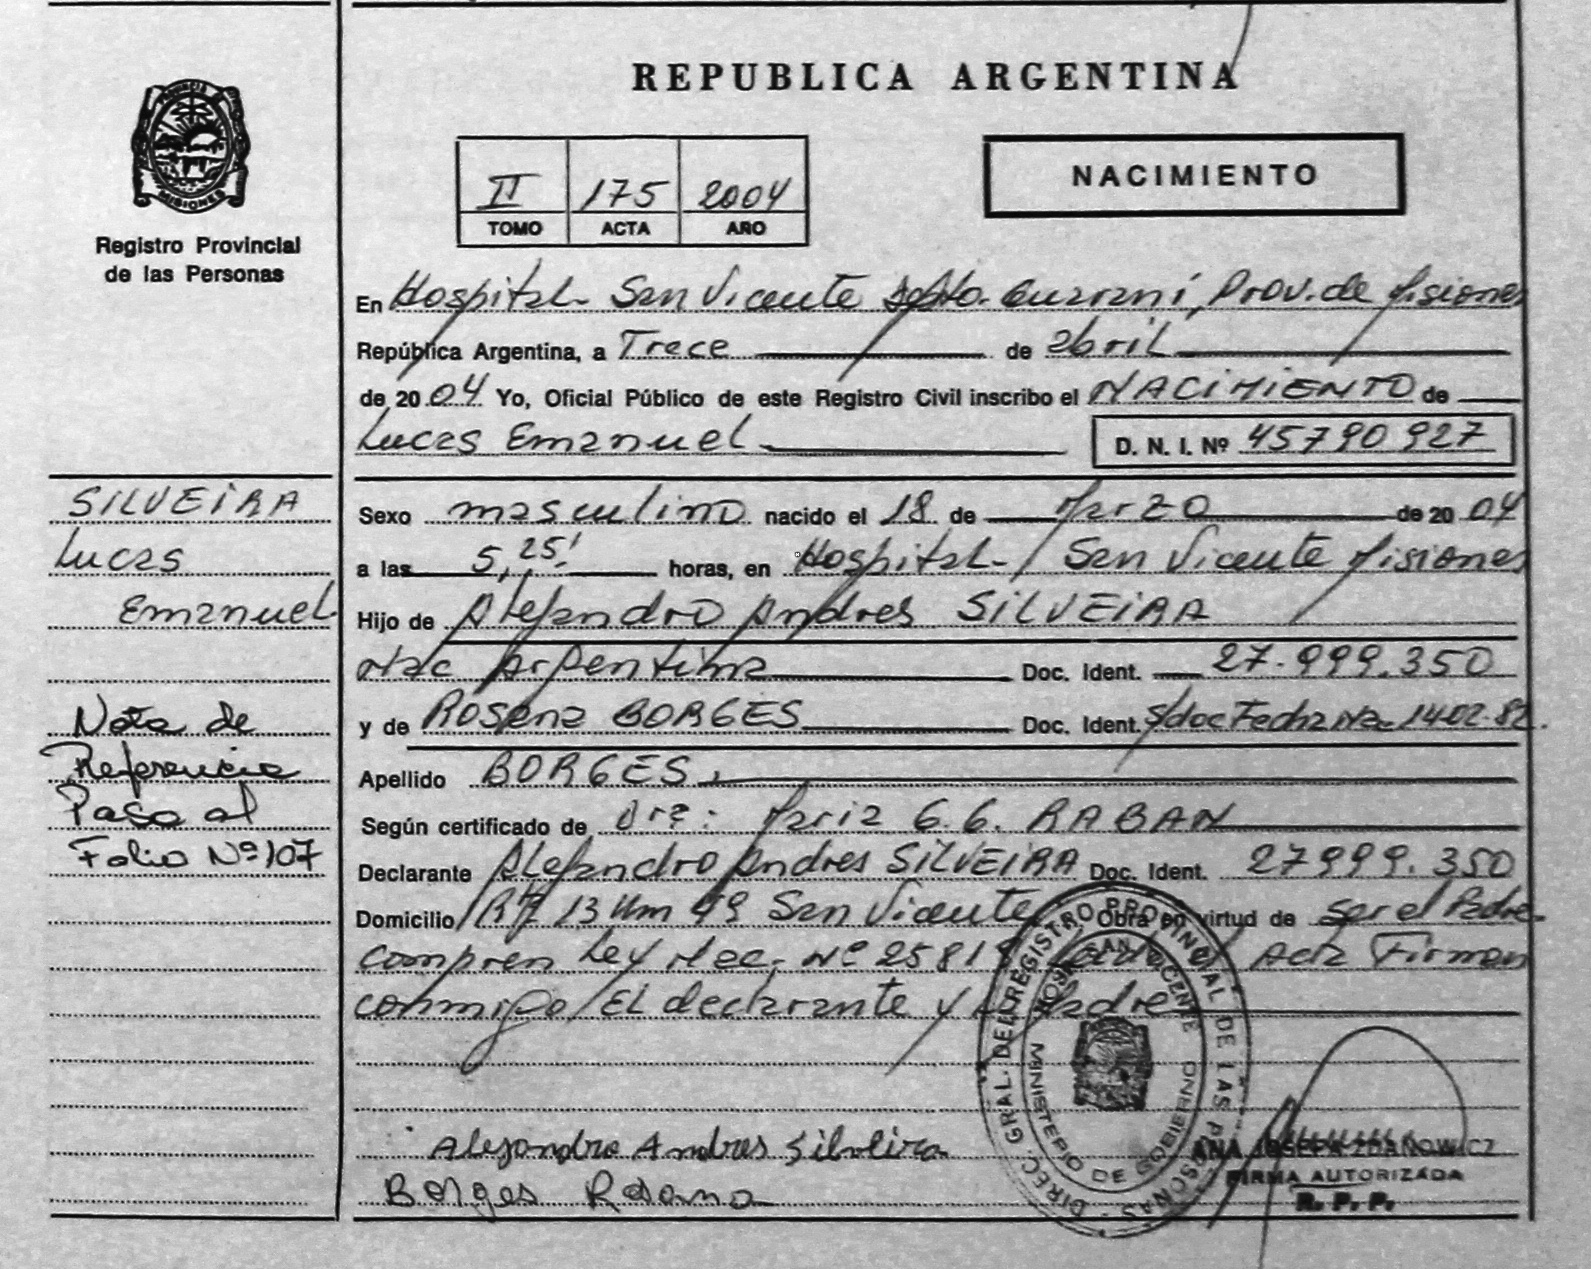 REPUBLICA ARGENTINA
NACIMIENTO
II 175 2004
TOMO ACTA AÑO
MISIONES
Registro Provincial
de las Personas
En Hospital San Vicente Depto. Guaraní, Prov. de Misiones
República Argentina, a Trece de abril
de 2004 Yo, Oficial Público de este Registro Civil inscribo el NACIMIENTO de
Lucas Emanuel D. N. I. Nº 45790927
SILVEIRA
Lucas
Emanuel
Nota de
Referencia
Pasa al
Folio Nº 107
Sexo masculino nacido el 18 de Marzo de 2004
a las 5,25' horas, en Hospital / San Vicente Misiones
Hijo de Alejandro Andres SILVEIRA
Nac Argentina Doc. Ident. 27.999.350
y de Rosana BORGES Doc. Ident. S/doc Fecha Na- 14.02.82.
Apellido BORGES
Según certificado de Dra: Maria G.G. RABAN
Declarante Alejandro Andres SILVEIRA Doc. Ident. 27999.350
Domicilio San Vicente Obra en virtud de ser el Padre
Ley Nac. Nº 25819 Acta Firman
conmigo El declarante y Madre
Alejandro Andres Silveira
Borges Rosana
DIREC. GRAL. DEL REGISTRO PROVINCIAL DE LAS PERSONAS
MINISTERIO DE GOBIERNO
SAN VICENTE
ANA JOSEFA ZDANOWICZ
FIRMA AUTORIZADA
R. P. P.